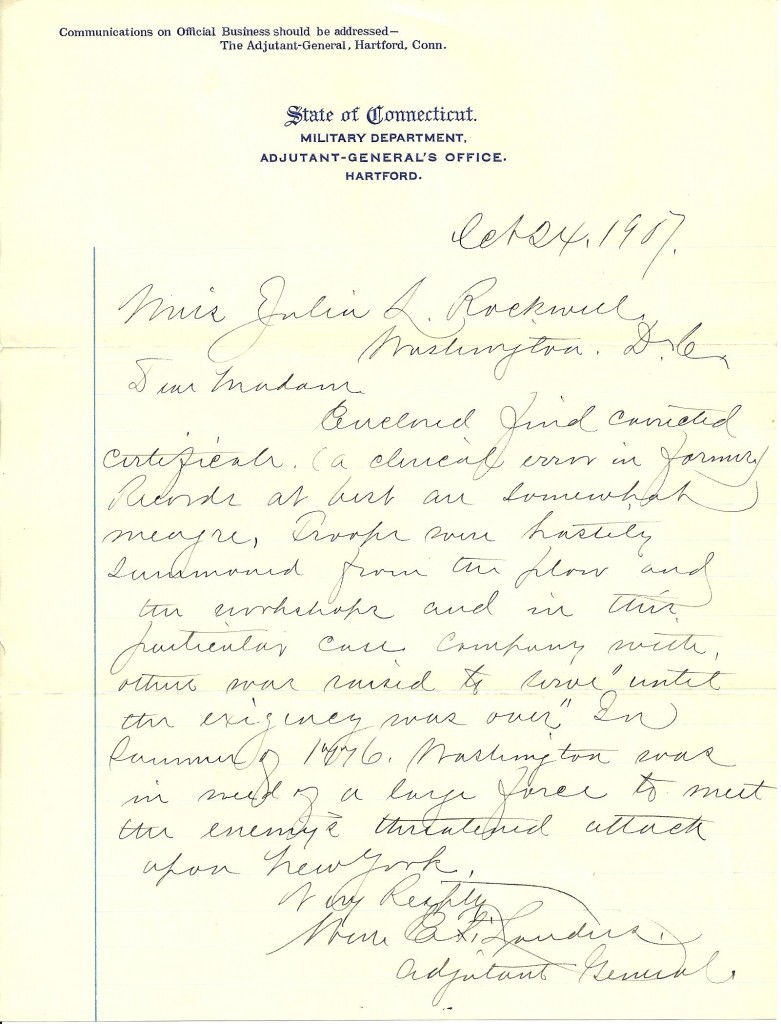 Communications on Official Business should be addressed—
The Adjutant-General, Hartford, Conn.
State of Connecticut.
MILITARY DEPARTMENT,
ADJUTANT-GENERAL'S OFFICE.
HARTFORD.
Oct 24, 1907.
Miss Julia L. Rockwell,
Washington. D.C.,
Dear Madam
Enclosed find corrected
certificate. (a clerical error in former)
Records at best are somewhat
meagre, Troops were hastily
summoned from the plow and
the workshops and in this
particular case company with,
others was raised to serve "until
the exigency was over" In
Summer of 1776. Washington was
in need of a large force to meet
the enemy's threatened attack
upon New York.
Very Respfly
E. Landers.
Adjutant General.